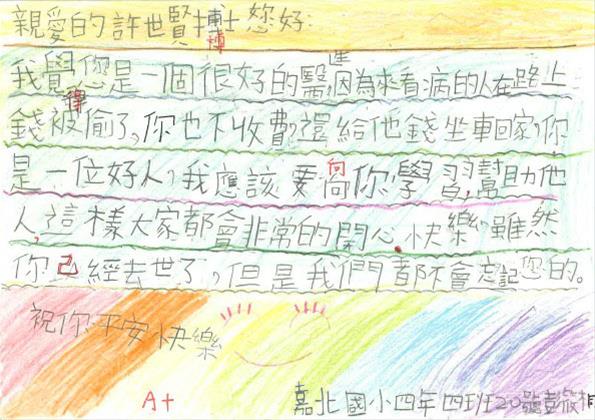 親愛的許世賢博士您好：
我覺得您是一個很好的醫生，因為來看病的人在路上
錢被偷了，你也不收費，還給他錢坐車回家，你
是一位好人，我應該要向你學習，幫助他
人，這樣大家都會非常的開心、快樂，雖然
你已經去世了，但是我們都不會忘記您的。
祝你平安快樂
A+
嘉北國小四年四班20號彭